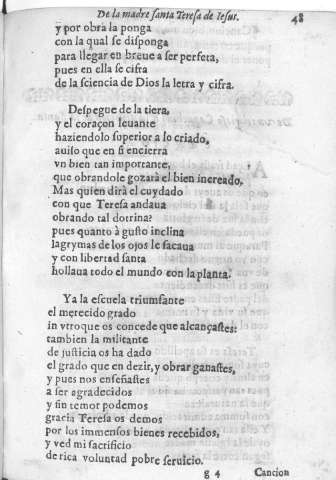 De la madre santa Teresa de Iesus. 48
y por obra la ponga
con la qual se disponga
para llegar en breue a ser perfeta,
pues en ella se cifra
de la sciencia de Dios la letra y cifra.
Despegue de la tiera,
y el coraçon leuante
haziendolo superior a lo criado,
auiso que en si encierra
vn bien tan importante,
que obrandole gozarà el bien increado,
Mas quien dirà el cuydado
con que Teresa andaua
obrando tal dotrina?
pues quanto à gusto inclina
lagrymas de los ojos le sacaua
y con libertad santa
hollaua todo el mundo con la planta.
Ya la escuela triumfante
el merecido grado
in vtroque os concede que alcançastes:
tambien la militante
de justicia os ha dado
el grado que en dezir, y obrar ganastes,
y pues nos enseñastes
a ser agradecidos
y sin temor podemos
gracia Teresa os demos
por los immensos bienes recebidos,
y ved mi sacrificio
de rica voluntad pobre seruicio.
g 4 Cancion